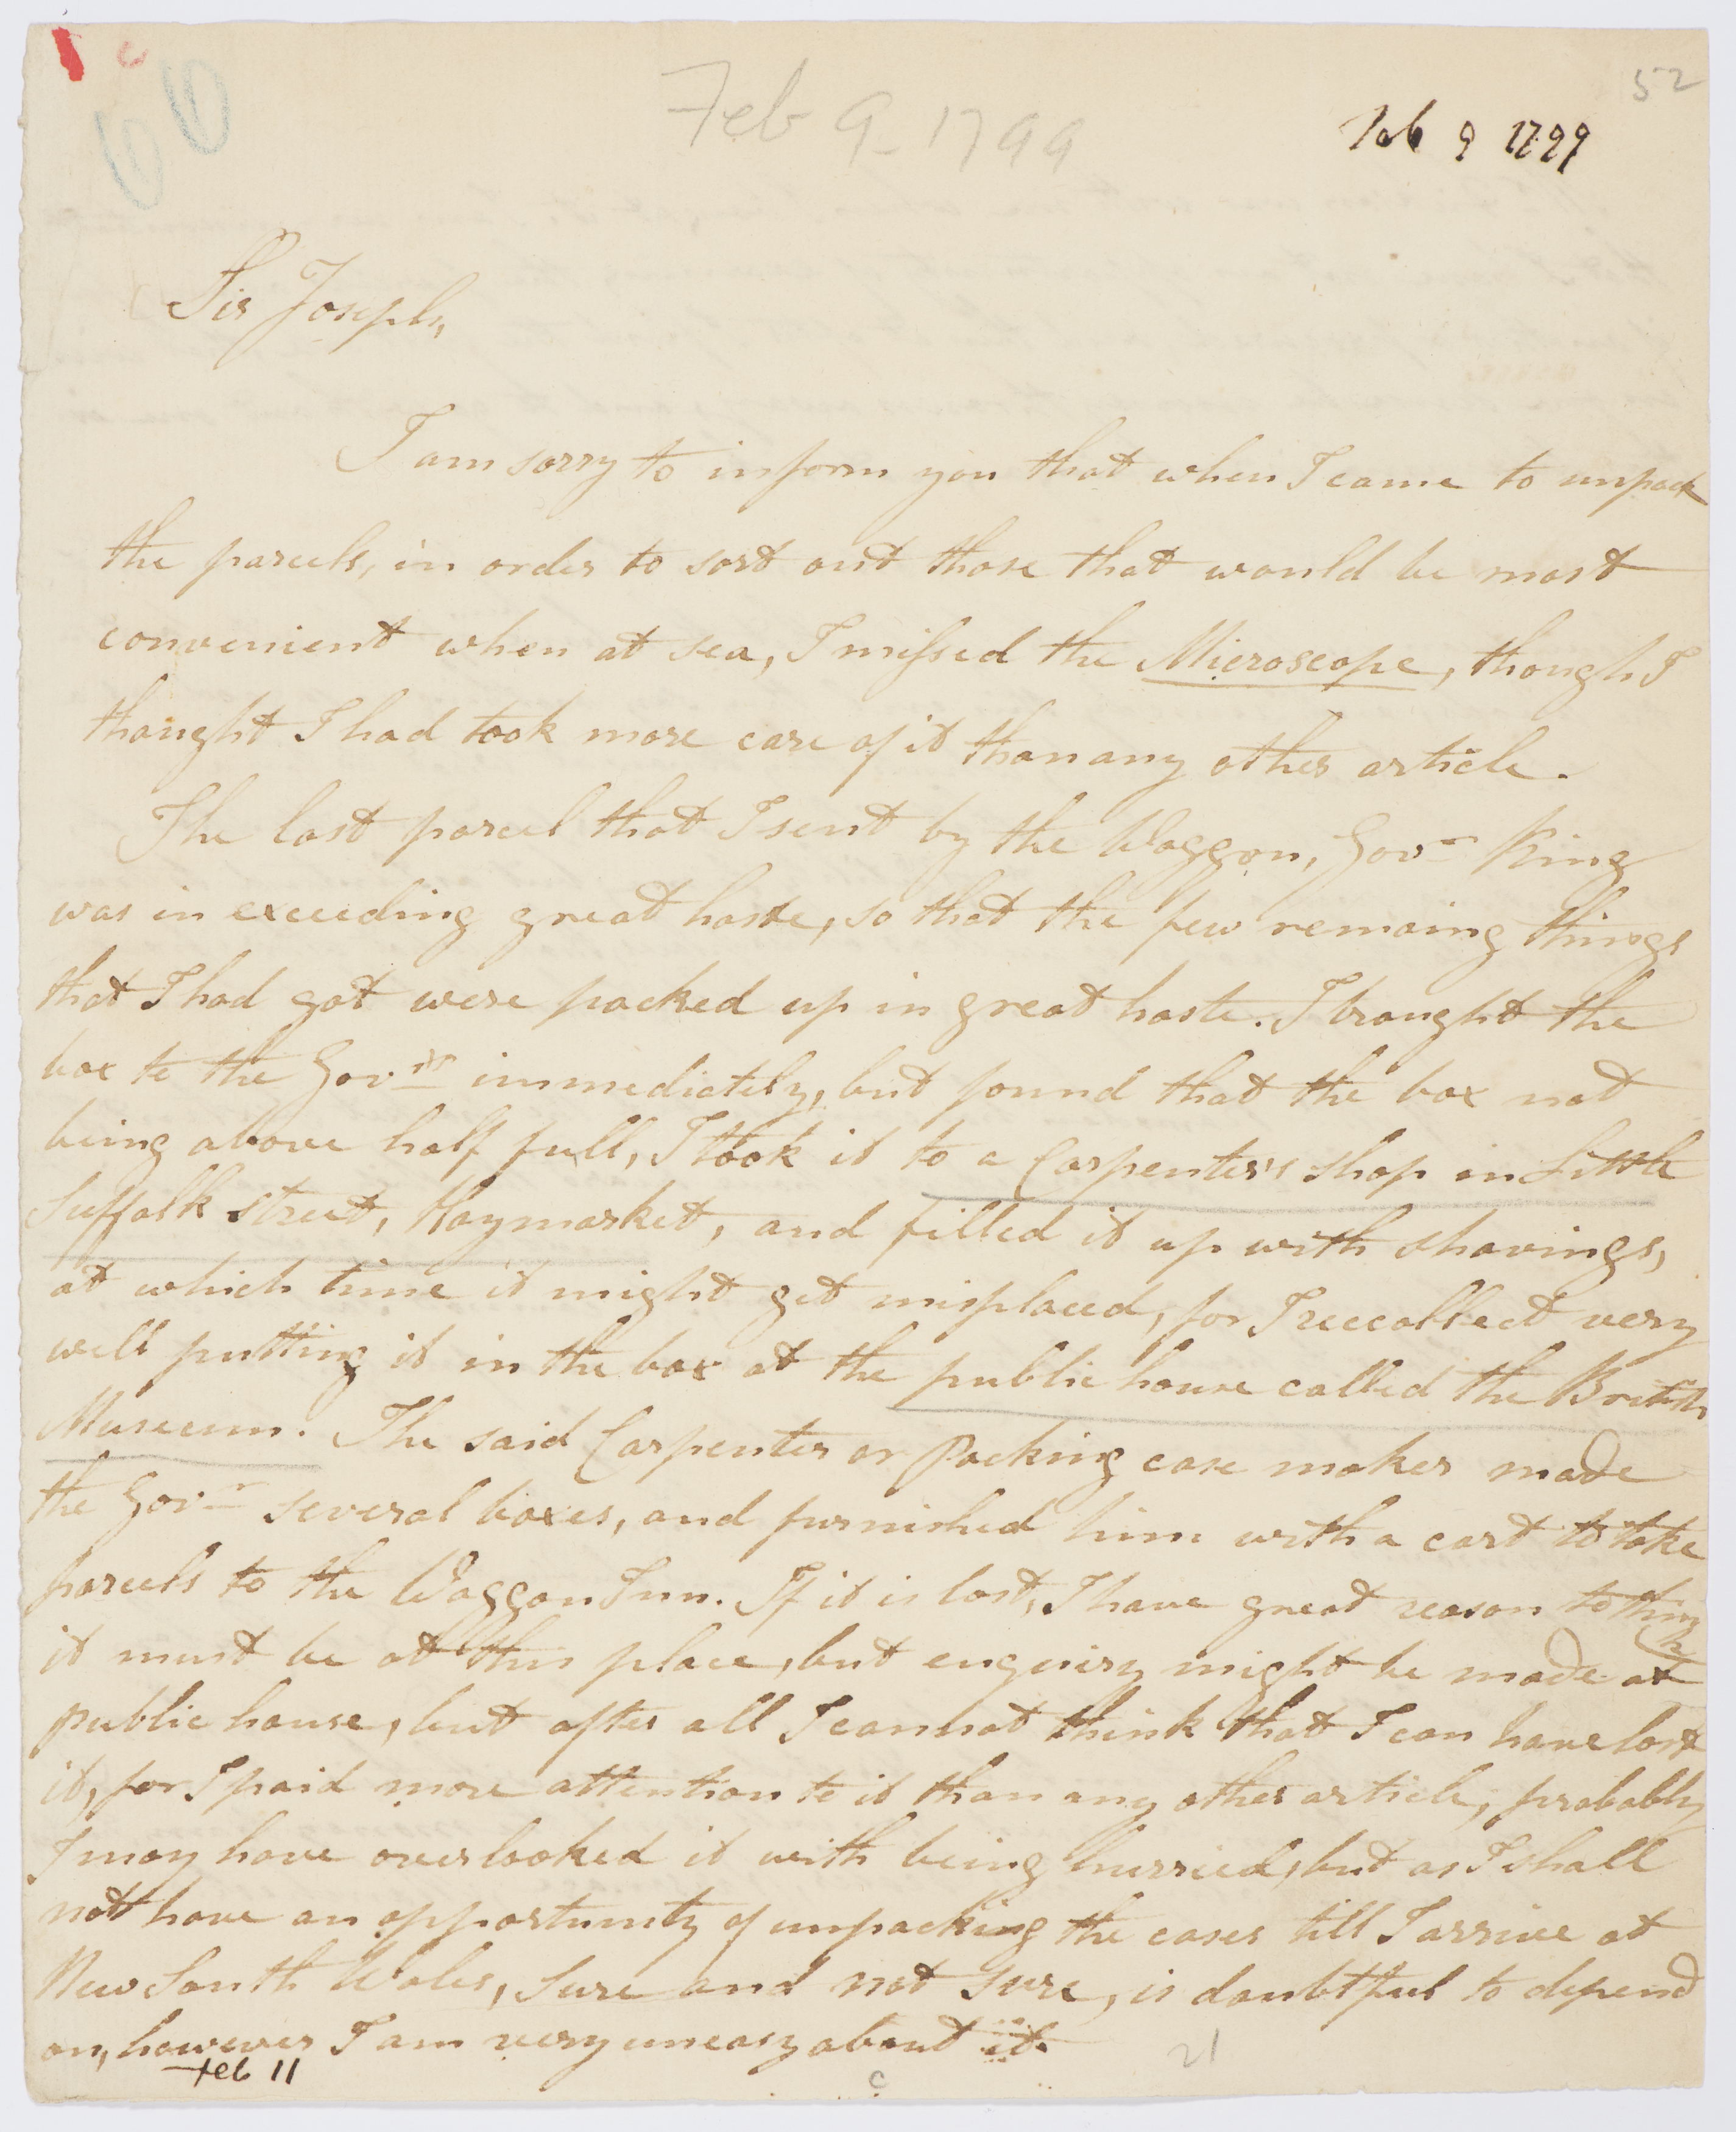 52
Feb 9 - 1799
Feb 9 1799
Sir Joseph,
I am sorry to inform you that when I came to unpack
the parcels, in order to sort out those that would be most
convenient when at sea, I missed the Microscope, though I
thought I had took more care of it than any other article.
The last parcel that I sent by the Waggon, Govr King
was in exceeding great haste, so that the few remaing things
that I had got were packed up in great haste. I brought the
box to the Govr immediately, but found that the box not
being above half full, I took it to a Carpenter's shop in Little
Suffolk street, Haymarket, and filled it up with shavings,
at which time it might get misplaced, for I reecollect very
well putting it in the box at the public house called the British
Museum. The said Carpenter or Packing case maker made
the Govr several boxes, and furnished him with a cart to take
parcels to the Waggon Inn. If it is lost, I have great reason to think
it must be at this place, but enquiry might be made at
public house, but after all I cannot think that I can have lost
it, for I paid more attention to it than any other article, probably
I may have overlooked it with being hurried, but as I shall
not have an opportunity of unpacking the cases till I arrive at
New South Wales, sure and not sure, is doubtful to depend
on, however I am very uneasy about it.
Feb 11
21
c